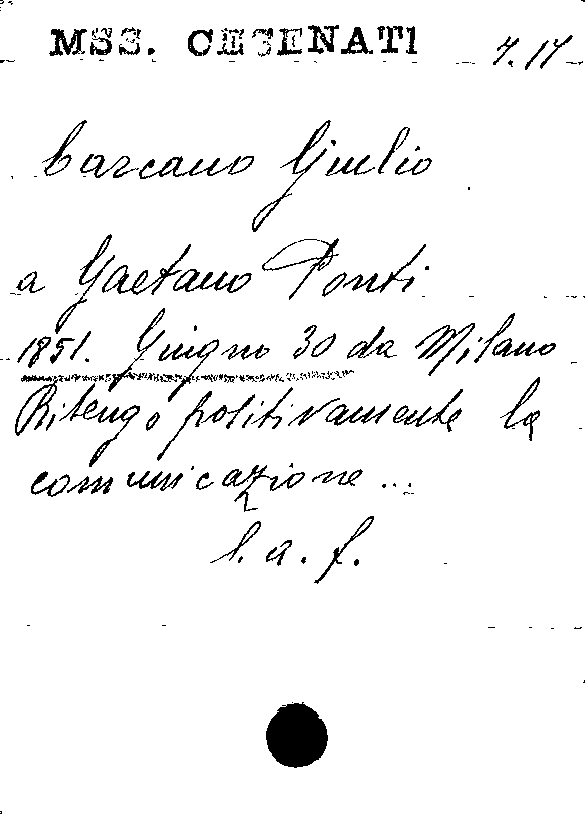 MSS. CESENATI 7.17
Carcano Giulio
a Gaetano Ponti
1851. Giugno 30 da Milano
Ritengo politivamente la
comunicazione ...
l. a. f.